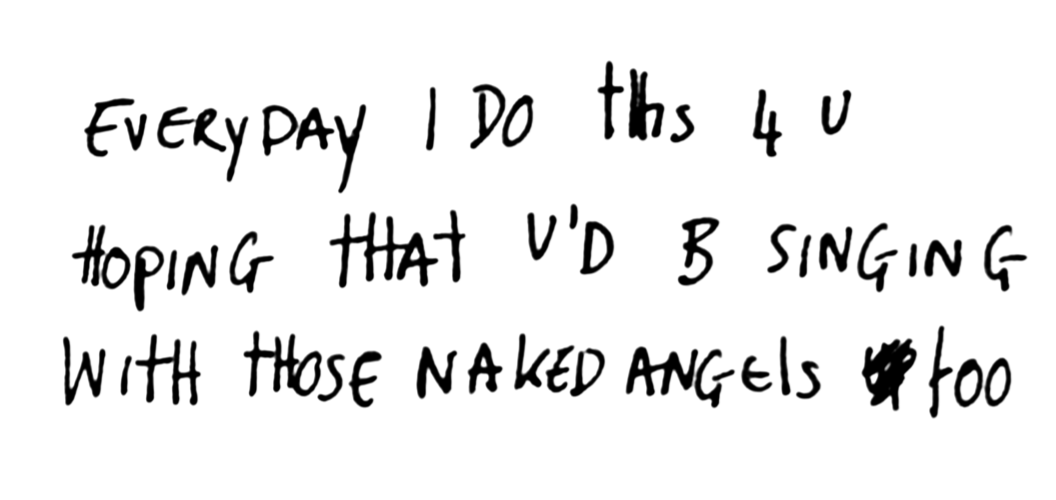 EVERYDAY I DO thIs 4 U
HOPING tHAt U'D B SINGING
WItH tHOSE NAkED ANGEls too